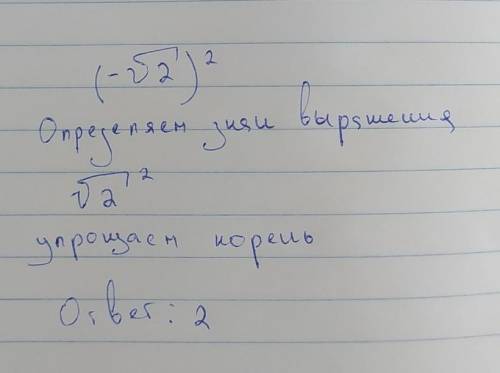 (-√2)²
Определяем знак выражения
√2²
упрощаем корень
Ответ: 2